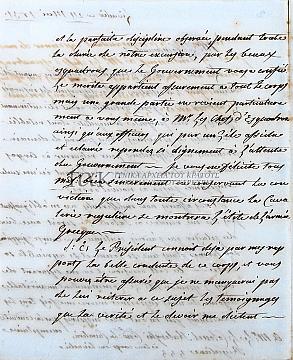 et la parfaite discipline observée pendant toute
la durée de notre excursion, par les beaux
esquadrons que le Gouvernement vous a confiés.
Le mérite appartient assurement à tout le corps
mais une grande partie en revient particulière
ment à vous même, à MM. les Chefs d'Esquadrons
ainsi qu'aux officiers qui par un zèle assidu
et éclairé repondent si dignement à l'attente
du Gouvernement — je vous en félicite tous
bien sincerement en conservant la con
viction que dans toute circonstance la Cava
lerie reguliere se montrera l'élite de l'armée
Grecque —
S. E. le Président connait déjà par mes rap
ports la belle conduite de ce corps, et vous
pouvez être assuré que je ne manquerai pas
de lui réiterer à ce sujet les temoignages
que la verité et le devoir me dictent —
ΓΕΝΙΚΑ ΑΡΧΕΙΑ ΤΟΥ ΚΡΑΤΟΥΣ